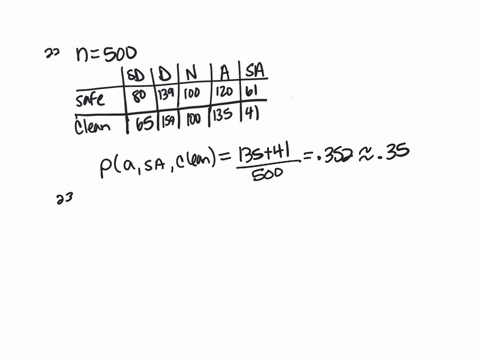 22 n=500
SD D N A SA
safe 80 139 100 120 61
Clean 65 159 100 135 41
P(a, SA, Clean) = 135+41 / 500 = .352 ≈ .35
23